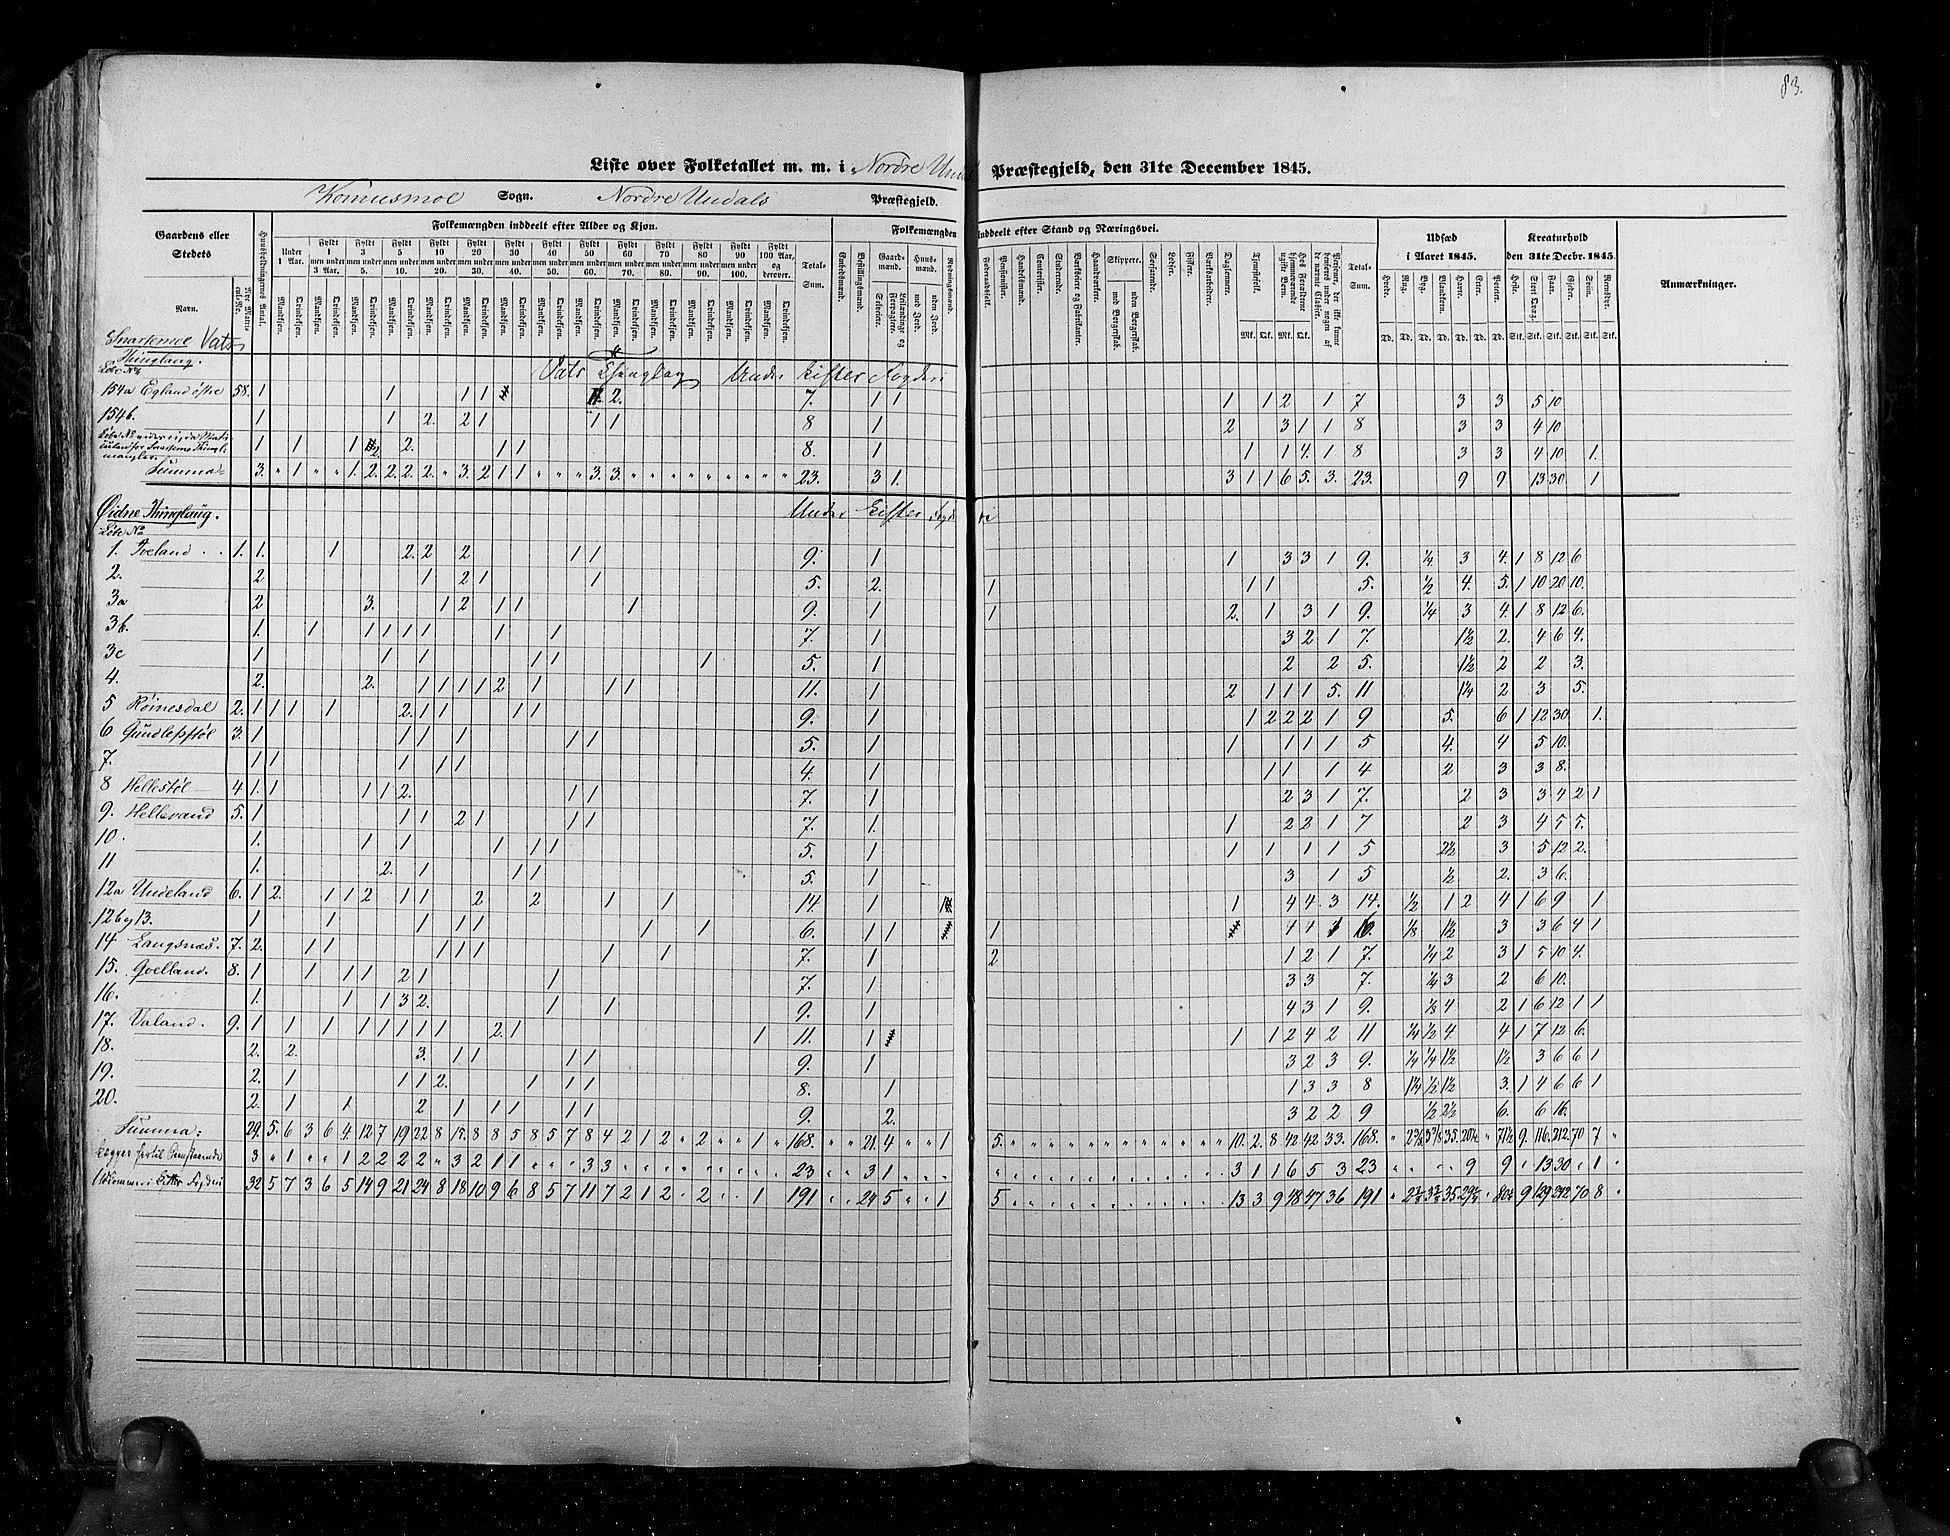 83.
Liste over Folketallet m. m. i Nordre Undals Præstegjeld, den 31te December 1845.
Konusmoe Sogn. Nordre Undals Præstegjeld.
Gaardens eller Stedets Navn.
Nye Matricule-No.
Huusholdningernes Antal.
Folkemængden inddeelt efter Alder og Kjøn.
Under 1 Aar.
Fyldt 1 men under 3 Aar.
Fyldt 3 men under 5.
Fyldt 5 men under 10.
Fyldt 10 men under 20.
Fyldt 20 men under 30.
Fyldt 30 men under 40.
Fyldt 40 men under 50.
Fyldt 50 men under 60.
Fyldt 60 men under 70.
Fyldt 70 men under 80.
Fyldt 80 men under 90.
Fyldt 90 men under 100.
Fyldt 100 Aar, og derover.
Mandkjøn. Qvindekjøn.
Total-Sum.
Folkemængden inddeelt efter Stand og Næringsvei.
Embedsmænd.
Bestillingsmænd.
Gaardmænd.
Selveiere.
Huusmænd.
med Jord.
uden Jord.
Føderaadsfolk.
Pensionister.
Handelsmænd.
Contorister.
Studerende.
Værkseiere og Fabrikanter.
Haandværkere.
Skippere.
med Borgerskab.
uden Borgerskab.
Søefarende.
Lodser.
Fiskere.
Værksarbeidere.
Daglønnere.
Tjenestefolk.
Mk. Qk. Mk. Qk.
Total-Sum.
Udsæd i Aaret 1845.
Hvede. Rug. Byg. Blandkorn. Havre. Erter. Poteter.
Td. Td. Td. Td. Td. Td. Td.
Kreaturhold den 31te Decbr. 1845.
Heste. Stort Qvæg. Faar. Gjeder. Sviin. Rensdyr.
Stk. Stk. Stk. Stk. Stk. Stk.
Anmærkninger.
Snartemoe Vats
Thinglaug.
Løbe No
Vats Thinglag Under Lister Fogderi
154a Egland østre 58. 1 1 1 1 2. 7. 1 1 1 1 2 1 7 3 3 5 10
154b. 1 1 2. 2 1 1 1 8 1 2 3 1 1 8 3 3 4 10
1 1 1 2. 2. 1 1 8. 1 1 1 4. 1 8 3 3 4 10 1.
Summa 3. " 1 " " 1. 2. 2. 2. 2. " 3. 2 1 1 " " " " 3. 3. " " " " " " " " 23. 3 1. 3 1 1 6 5. 3. 23. 9 9 13 30 1
Øidne Thinglaug. Under Lister Fogderi
Løbe No
1. Tveland 1. 1. 1 2. 2 2 1 1 9. 1 1 3 3 1 9. ¼ 3 4. 1 8 12 6
2. 2 1 2 1 1 5. 2. 1 1 1 5. ½ 4. 5. 1 10 20 10.
3a 2 3. 1 2 1 1 1 9. 1 1 2. 1 3 1 9. ¼ 3 4. 1 8 12 6.
3b. 1. 1 1 1 1 1 1 1 7. 1 3 2 1 7. 1½ 2. 4 6 4.
3c 1 1 1 1 1 1 5. 1 2 2 5. 1½ 2 2 3.
4. 2. 2. 1 1 1 1 2 1 1 1 11. 1 2 1 1 1 5. 11 1¼ 2 3 5.
5 Røinesdal 2. 1 1 1 1 2. 1 1 1 1 9. 1 1 2 2 2 1 9 5. 6 1 12 30 1.
6 Gundlefstøl 3. 1 1 1 1 1 1 5. 1 1 1 1 1 5 4. 4 5 10.
7. 1 1 1 1 1 4. 1 1 1 1 4 2 3 3 8.
8 Hellestøl 4 1. 1 1 1 2. 1 1 7. 1 2 3 1 7. 2 3 3 4 2 1
9. Hellevand 5. 1 1 1 2 1 1 1 7. 1. 1 2 2 1 7 2 3 4 5 5.
10. 1. 1 1 1 1 1 5. 1 1 1 1 1 5 2½ 3 5 12 2.
11 1. 2. 1 1 1 5. 1 3 1 5 ½ 2. 3 6.
12a Undeland 6. 1 2. 1 1 2 1 1 2 2 1 1 14. 1 1 4 4. 3 14. ½ 1 2 4 1 6 9 1
12b og 13. 1 1 1 1 1 1 1 6. 1 1 1 4 4 ⅛ 1½ 3 3 6 4 1
14 Langsnæs. 7. 2. 1 1 1 1 1 1 1 7. 1 2 1 2 1 7. ¼ 2 3 1 5 10 4.
15. Qvelland. 8. 1 1 1 1 2 1 1 7. 1 3 3 7. ¼ 3 2 6 10.
16. 1. 1 1 3 2. 1 1 9. 1 4 3 1 9. ⅛ 4 2 1 6 12 1 1
17. Valand. 9. 1 1 1 1 1 1 1 1 2. 1 1 11. 1 1 1 2 4 2 11 ¼ ½ 4. 4 1 7 12 6.
18. 2. 2. 3. 1 1 1 1 9. 1 3 2 3 9. ¼ ¼ 1½ 1½ 3 6 6 1
19. 2. 1 1 1 2. 1 1 1 8. 1 1 3 3 8 1¼ ½ 1½ 3. 1 4 6 6 1
20. 2. 1 1 2 1 1 1 1 1 9. 2. 3 2 2 9 ½ 2½ 6. 6 16.
Summa: 29. 5. 6 3 6 4. 12 7 19 22 8 15. 8 8 5 8 5 7 8 4 2 1 2 " 2 " " 1 " 168. " " 21. 4 " " 1 5. 10. 2. 8 42 42 33. 168. 71½ 9. 116. 212. 70 7 "
3 " 1 " " 1 2 2 2 2 " 3 2 1 1 " " " " 3 3 23 " " 3 1 3 1 1 6 5 3 23 9 9 " 13 30 " 1
32 5 7 3 6 5 14 9 21 24 8 18 10 9 6 8 5 7 11 7 2 1 2 " 2 " " 1 191 " " 24 5 " " 1 5 13 3 9 48 47 36 191 80½ 9 129 242 70 8 "